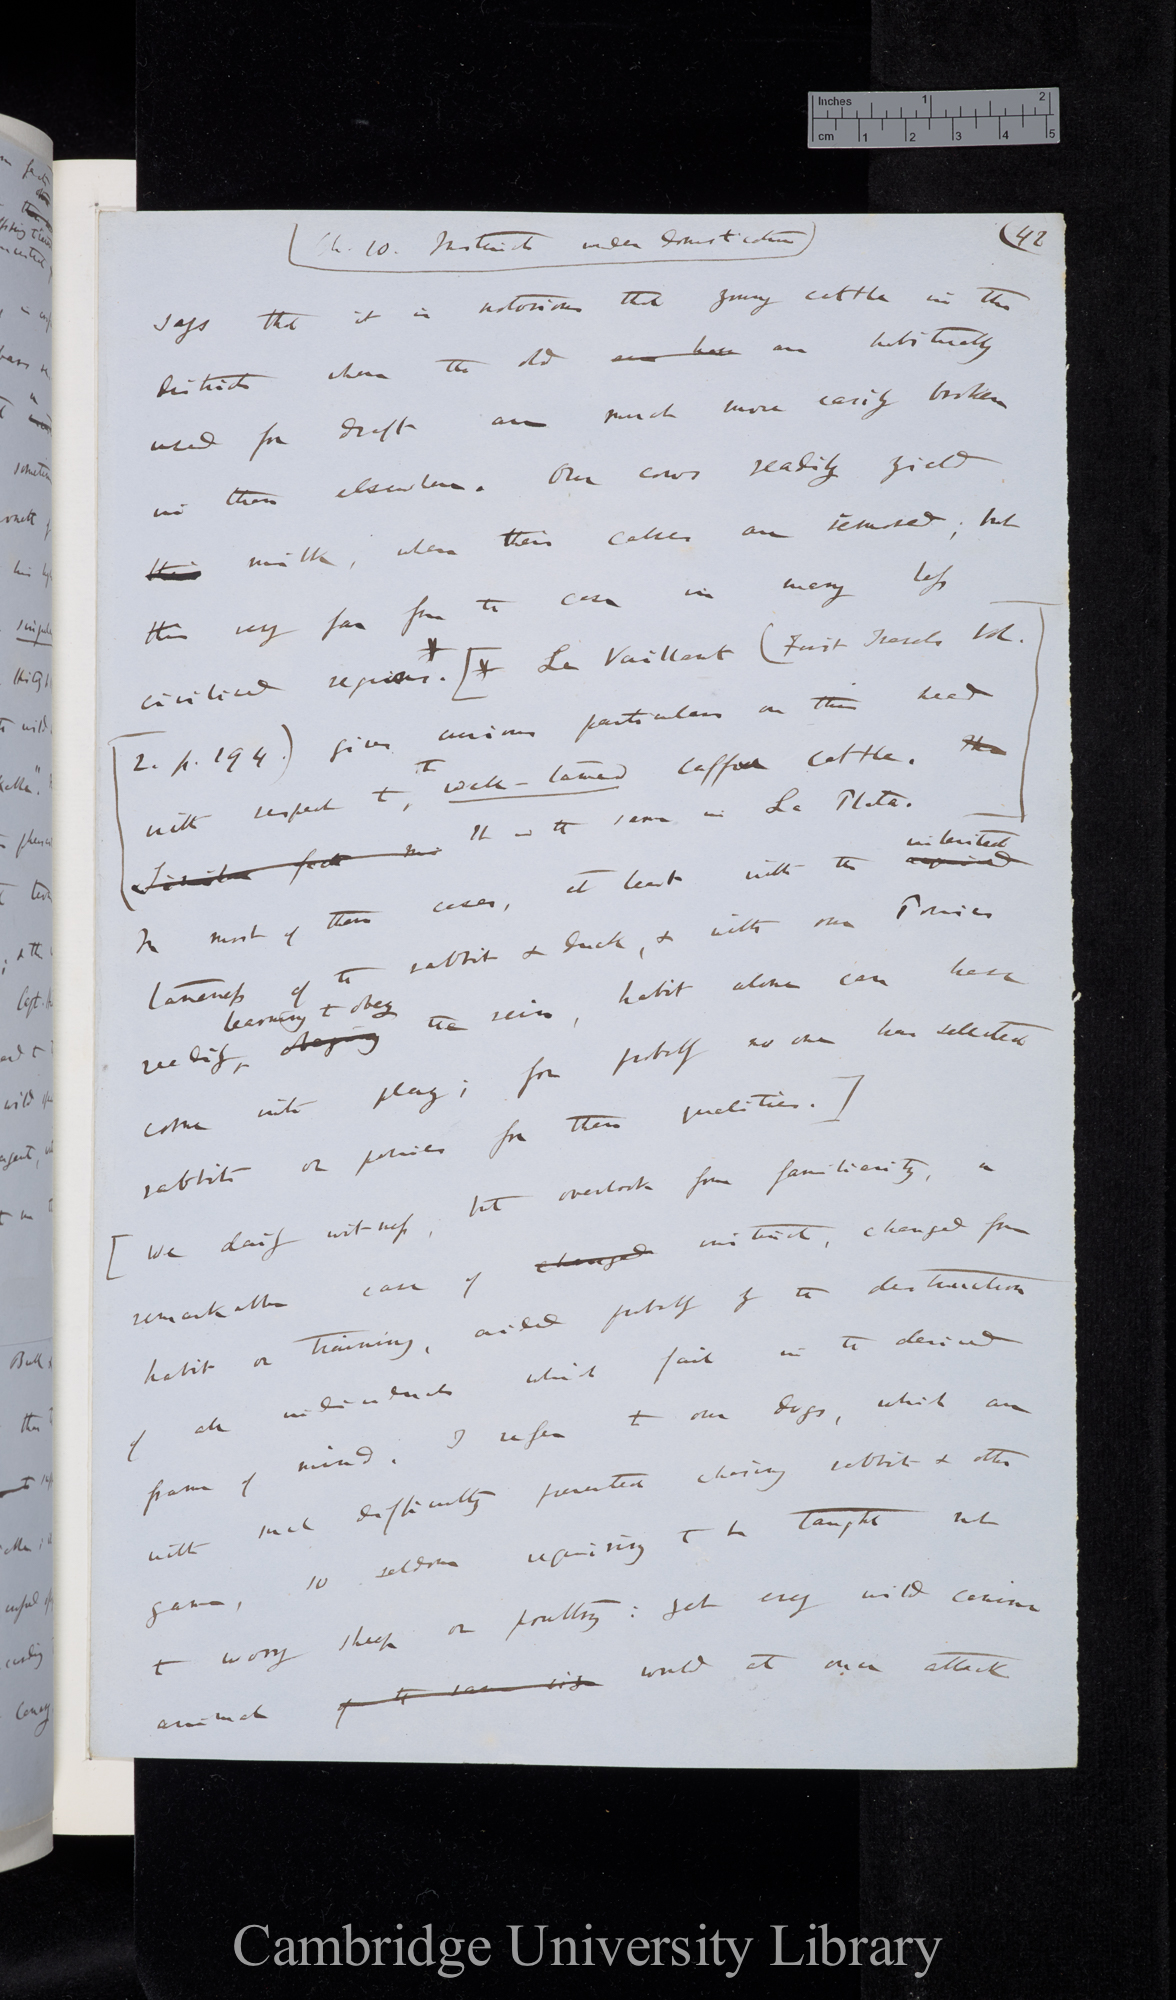 Inches 1 2
cm 1 2 3 4 5
Ch. 10. Instinct under Domestication
(42
says that it is notorious that young cattle in the
districts where the old are have are habitually
used for draft are much more easily broken
in than elsewhere. Our cows readily yield
their milk, when their calves are removed; but
this very far from the case in many less
civilised regions.* [* Le Vaillant (First Travels Vol.
2. p. 194.) gives curious particulars on this head
with respect to, the well-tamed Caffre cattle. The
Similar fact It is the same in La Plata.
inherited
In most of these cases, at least with the acquired
tameness of the rabbit & duck, & with our Ponies
learning to obey
readily, obeying the rein, habit alone can have
come into play; for probably no one has selected
rabbits or ponies for these qualities.]
[We daily witness, but overlook from familiarity, a
remarkable case of changed instinct, changed from
habit or training, aided probably by the destruction
of all individuals which fail in the desired
frame of mind. I refer to our dogs, which are
with such difficulty prevented chasing rabbits & other
game, so seldom requiring to be taught not
to worry sheep or poultry: yet every wild canine
animal of the same size would at once attack
Cambridge University Library